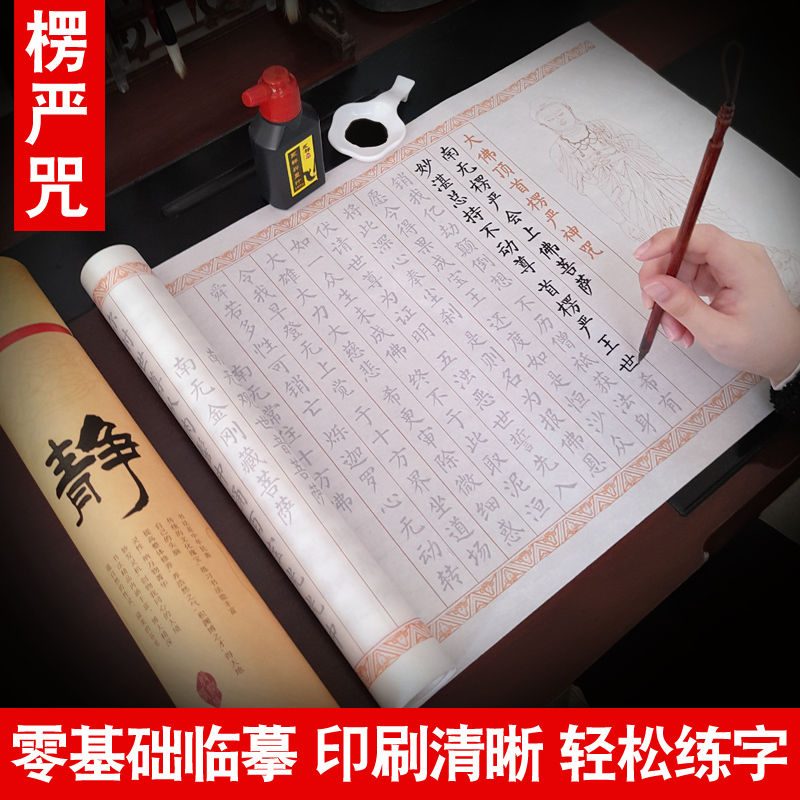 楞严咒
大佛顶首楞严神咒
南无楞严会上佛菩萨
妙湛总持不动尊首楞严王世希有
销我亿劫颠倒想不历僧祇获法身
愿今得果成宝王还度如是恒沙众
将此深心奉尘刹是则名为报佛恩
伏请世尊为证明五浊恶世誓先入
如一众生未成佛终不于此取泥洹
大雄大力大慈悲希更审除微细惑
令我早登无上觉于十方界坐道场
舜若多性可销亡烁迦罗心无动转
南无金刚藏菩萨
静
零基础临摹 印刷清晰 轻松练字